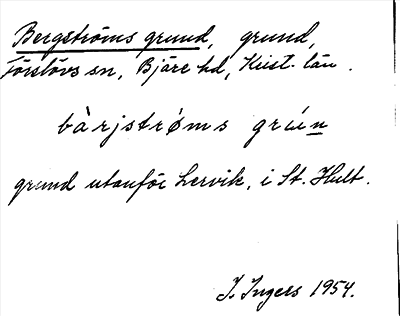 Bergströms grund, grund,
Förslövs sn, Bjäre hd, Krist. län.
bàrjstrøms grún
grund utanför Lervik, i St. Hult.
I. Ingers 1954.